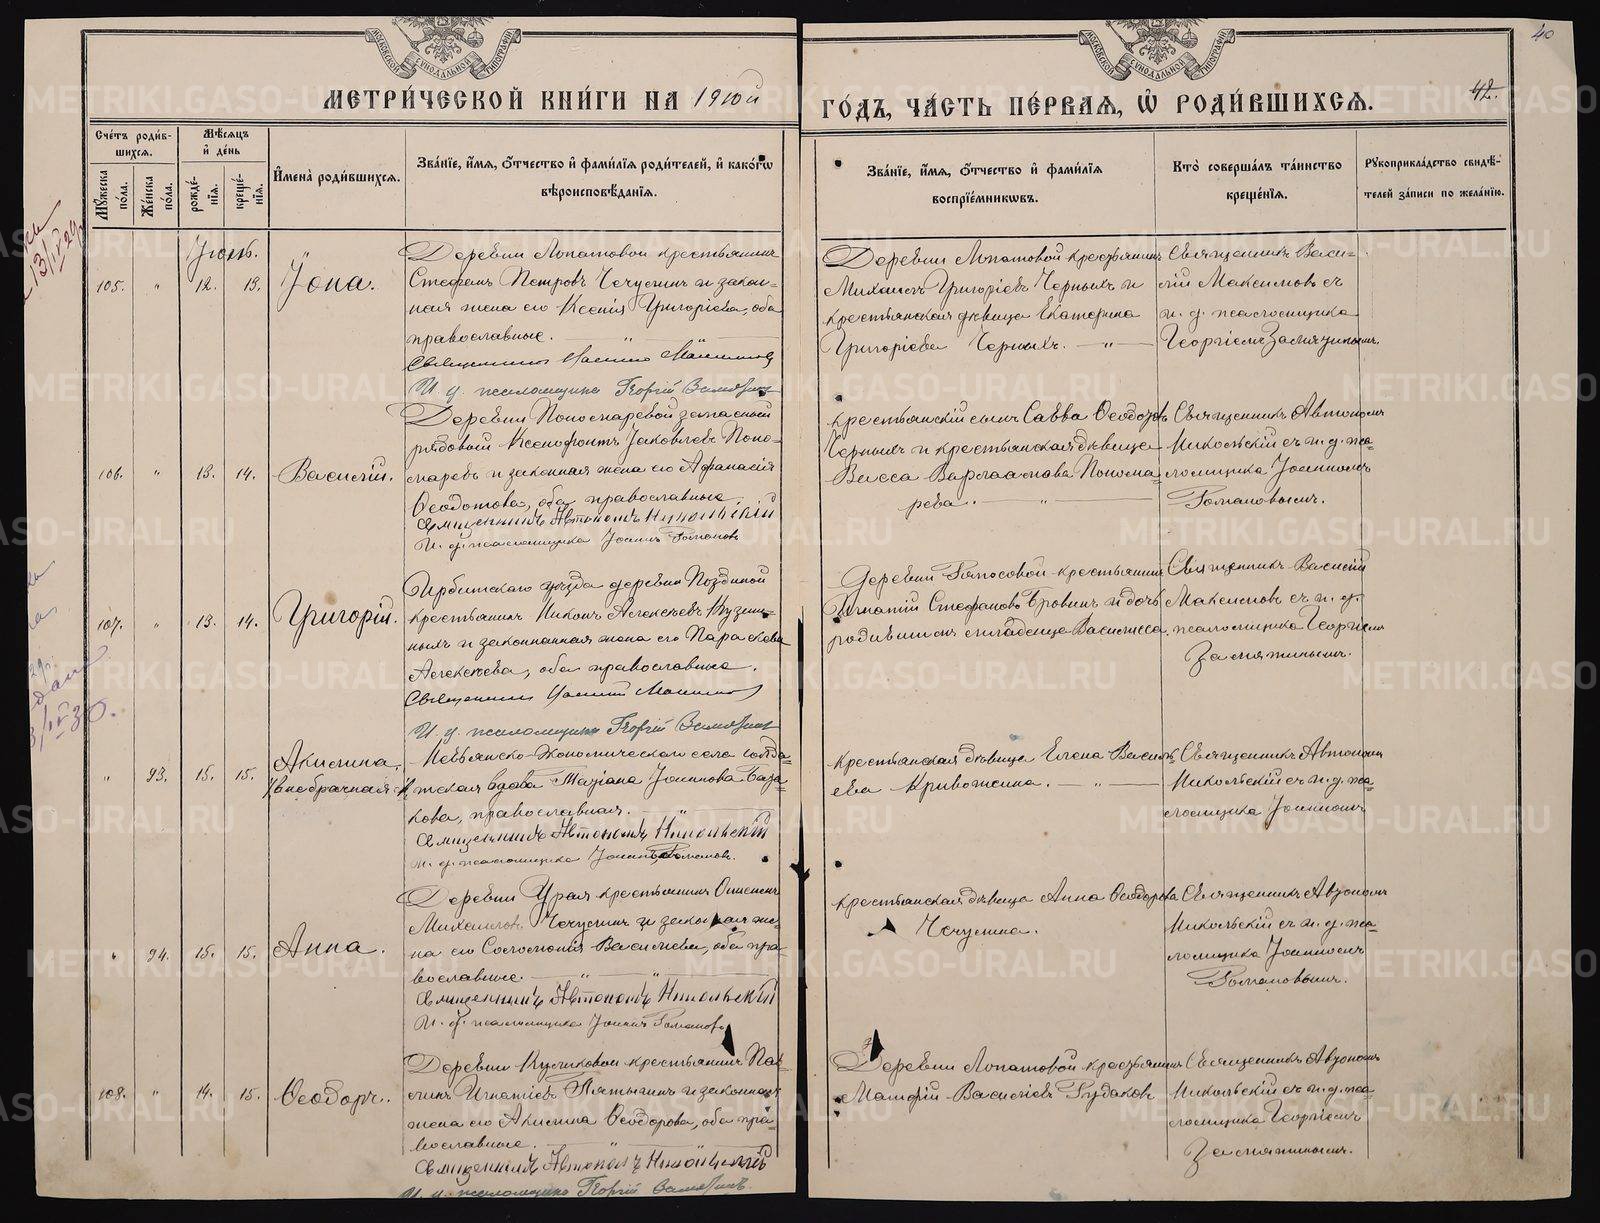 МЕТРИ́ЧЕСКОЙ КНИ́ГИ НА 1910й ГО́ДЪ, ЧА́СТЬ ПЕ́РВАѦ, Ѡ҆ РОДИ́ВШИХСѦ.
40
42.
МОСКОВСКОЙ СѴНОДАЛЬНОЙ ТИПОГРАФІИ
МОСКОВСКОЙ СѴНОДАЛЬНОЙ ТИПОГРАФІИ
Сче́тъ роди́в-
шихсѧ.
Мѣ́сѧцъ
и҆ де́нь
Мꙋ́жеска по́ла.
Же́нска по́ла.
рожде́-
нїѧ.
креще́-
нїѧ.
И҆мена̀ роди́вшихсѧ.
Зва́нїе, и҆́мѧ, ѻ҆́тчество и҆ фами́лїѧ роди́телей, и҆ како́гѡ
вѣроисповѣ́данїѧ.
Зва́нїе, и҆́мѧ, ѻ҆́тчество и҆ фами́лїѧ
воспрїе́мникѡвъ.
Кто̀ соверша́лъ та́инство
креще́нїѧ.
Рꙋкоприкла́дство свидѣ́-
телей за́писи по жела́нїю.
Іюль.
105. " 12. 13. Іона.
Деревни Лопатовой крестьянинъ
Стефанъ Петровъ Чечулинъ и закон-
ная жена его Ксенія Григоріева, оба
православные. "
Священникъ Василій Максимовъ
И. д. псаломщика Георгій Замятинъ
Деревни Лопатовой крестьянинъ
Михаилъ Григоріевъ Черныхъ и
крестьянская дѣвица Екатерина
Григоріева Черныхъ. "
Священникъ Васи-
лій Максимовъ съ
и. д. псаломщика
Георгіемъ Замятинымъ.
106. " 13. 14. Василій.
Деревни Пономаревой запасный
рядовый Ксенофонтъ Іаковлевъ Поно-
маревъ и законная жена его Афанасія
Ѳеодотова, оба православные.
Священникъ Автономъ Никольскій
И. д. псаломщика Іоаннъ Романовъ
крестьянскій сынъ Савва Ѳеодоровъ
Черныхъ и крестьянская дѣвица
Васса Варлаамова Понома-
рева. "
Священникъ Автономъ
Никольскій съ и. д. пса-
ломщика Іоанномъ
Романовымъ.
107. " 13. 14. Григорій.
Ирбитскаго уѣзда деревни Поздиной
крестьянинъ Никонъ Алексѣевъ Кузми-
ныхъ и законная жена его Параскева
Алексѣева, оба православные.
Священникъ Василій Максимовъ
И. д. псаломщика Георгій Замятинъ
Деревни крестьянинъ
Игнатій Стефановъ и дочь
родившихъ Василисса
Священникъ Василій
Максимовъ съ и. д.
псаломщика Георгіемъ
Замятинымъ.
" 93. 15. 15. Акилина.
(внебрачная)
Невьянско-Экономическаго села солда-
тская вдова Маріана Іоаннова База-
кова, православная. "
Священникъ Автономъ Никольскій
И. д. псаломщика Іоаннъ Романовъ.
крестьянская дѣвица Елена Василь-
ева Кривоножкина. "
Священникъ Автономъ
Никольскій съ и. д. пса-
ломщика Іоанномъ
" 94. 15. 15. Анна.
Деревни Урая крестьянинъ
Михаиловъ Чечулинъ и законная же-
на его Соломонія Василіева, оба пра-
вославные. " "
Священникъ Автономъ Никольскій
И. д. псаломщика Іоаннъ Романовъ
крестьянская дѣвица Анна Ѳеодорова
Чечулина.
Священникъ Автономъ
Никольскій съ и. д. пса-
ломщика Іоанномъ
Романовымъ.
108. " 14. 15. Ѳеодоръ.
Деревни Куликовой крестьянинъ Пав-
линъ Игнатіевъ Пятыгинъ и законная
жена его Акилина Ѳеодорова, оба пра-
вославные. " "
Священникъ Автономъ Никольскій
И. д. псаломщика Георгій Замятинъ.
Деревни Лопатовой крестьянинъ
Василіевъ Рудаковъ
Священникъ Автономъ
Никольскій съ и. д. пса-
ломщика Георгіемъ
Замятинымъ.
METRIKI.GASO-URAL.RU